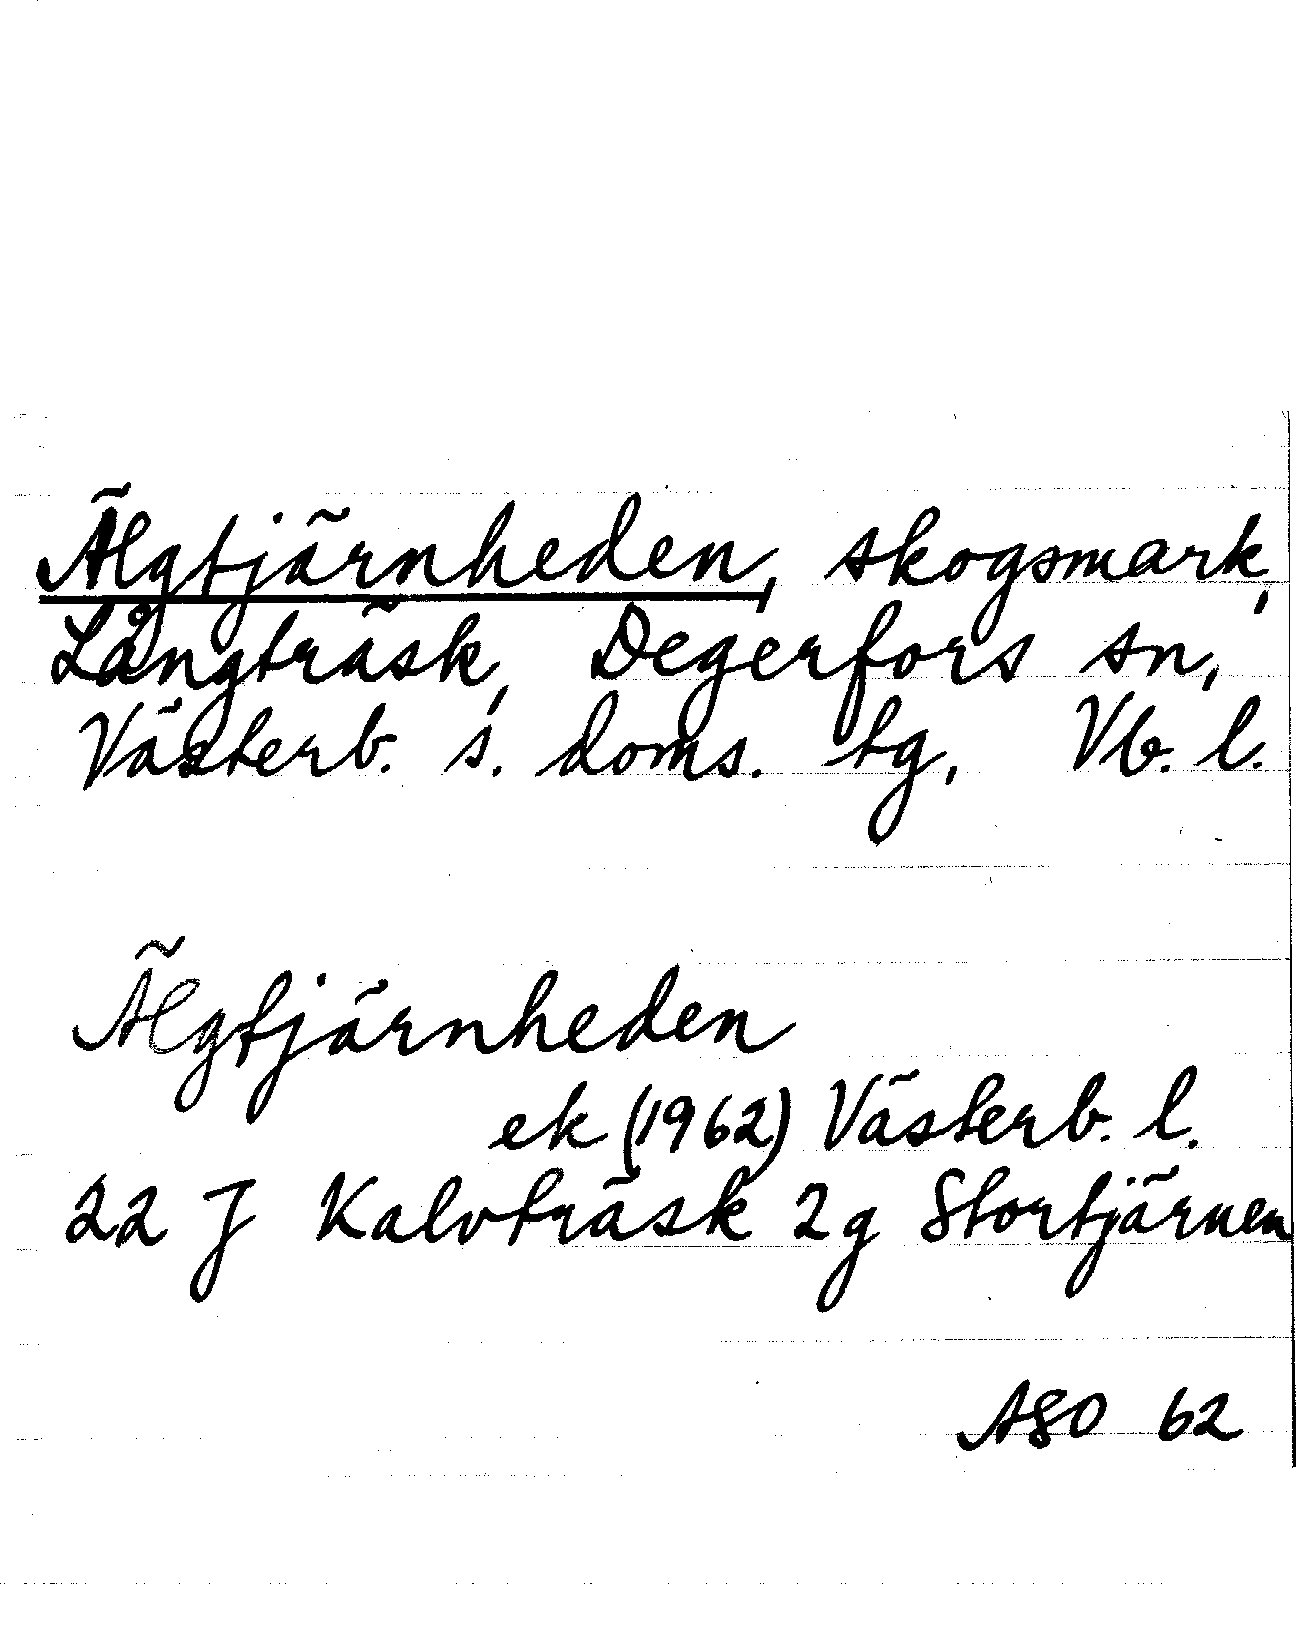 Älgtjärnheden, skogsmark,
Långträsk, Degerfors sn,
Västerb. s. doms. tg, Vb. l.
Älgtjärnheden
ek (1962) Västerb. l.
22 J Kalvträsk 2g Stortjärnen
ASO 62